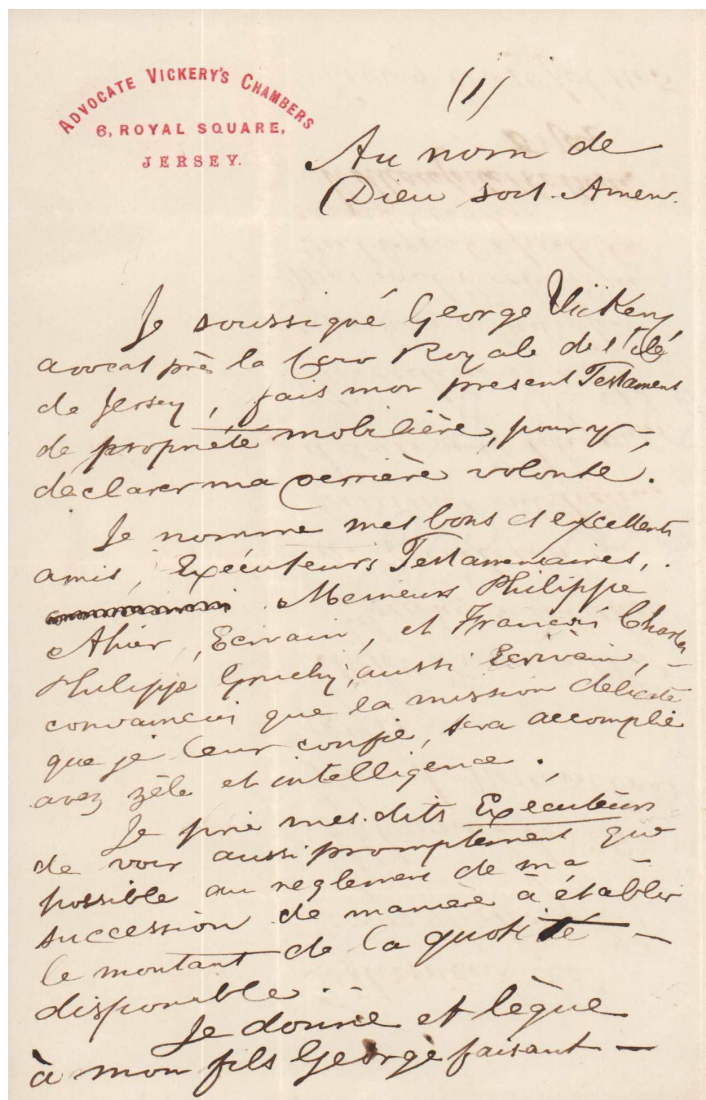 ADVOCATE VICKERY'S CHAMBERS
6, ROYAL SQUARE,
JERSEY.
(1)
Au nom de
Dieu soit. Amen.
Je soussigné George Vickery
avocat près la Cour Royale de l'Ile
de Jersey, fais mon présent Testament
de propriété mobilière, pour y
déclarer ma dernière volonté.
Je nomme mes bons et excellents
amis, Exécuteurs Testamentaires,
Messieurs Philippe
Ahier, Ecrivain, et François Charles
Philippe Gruchy, aussi Ecrivain,
convaincu que la mission délicate
que je leur confie, sera accomplie
avez zèle et intelligence.
Je prie mes dits Exécuteurs
de voir aussi promptement que
possible au reglement de ma
succession de manière à établir
le montant de la quotité
disponible.
Je donne et lègue
à mon fils George faisant